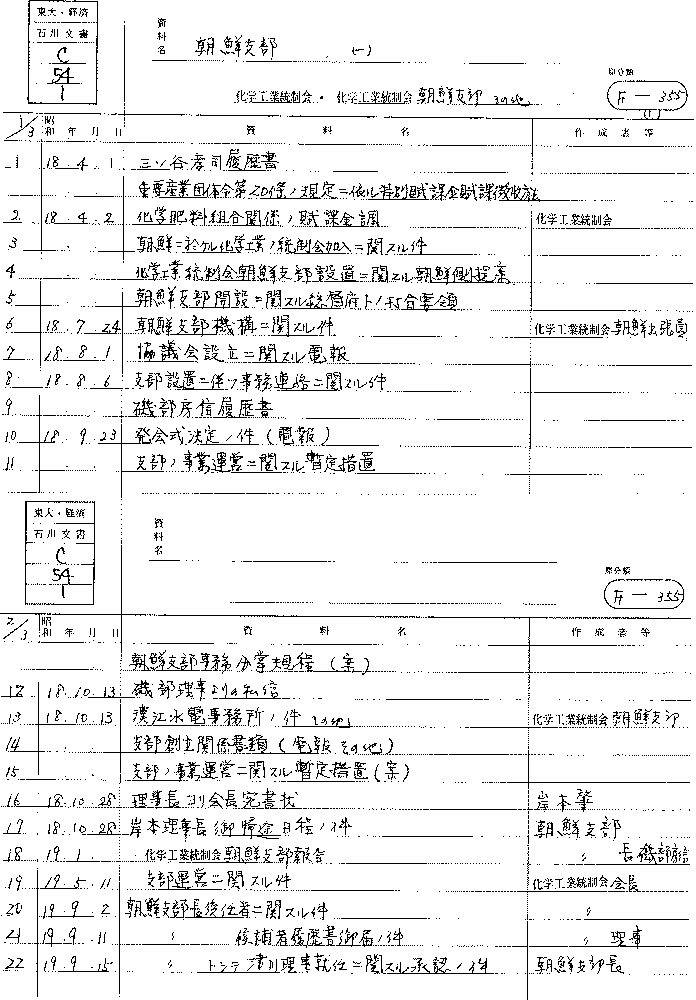 東大・経済
石川文書
C
54
1
資料名
朝鮮支部 (一)
原分類
F — 355
(1)
化学工業統制会・化学工業統制会朝鮮支部 その他
1/3 昭和 年 月 日 資料名 作成者等
1 18.4.1 三ツ谷孝司履歴書
重要産業団体令第20條ノ規定ニ依ル特別賦課金賦課徴収方法
2 18.4.2 化学肥料組合関係ノ賦課金調 化学工業統制会
3 朝鮮ニ於ケル化学工業ノ統制会加入ニ関スル件
4 化学工業統制会朝鮮支部設置ニ関スル朝鮮側提案
5 朝鮮支部開設ニ関スル総督府トノ打合要領
6 18.7.24 朝鮮支部機構ニ関スル件 化学工業統制会朝鮮出張員
7 18.8.1 協議会設立ニ関スル電報
8 18.8.6 支部設置ニ伴フ事務連絡ニ関スル件
9 磯部房信履歴書
10 18.9.23 発会式決定ノ件(電報)
11 支部ノ事業運営ニ関スル暫定措置
東大・経済
石川文書
C
54
1
資料名
原分類
F — 355
2/3 昭和 年 月 日 資料名 作成者等
朝鮮支部事務分掌規程(案)
12 18.10.13 磯部理事よりの私信
13 18.10.13 漢江水電事務所ノ件 その他 化学工業統制会朝鮮支部
14 支部創立関係書類(電報その他)
15 支部ノ事業運営ニ関スル暫定措置(案)
16 18.10.28 理事長ヨリ会長宛書状 岸本肇
17 18.10.28 岸本理事長御帰途日程ノ件 朝鮮支部
18 19.1. 化学工業統制会朝鮮支部報告 〃 長磯部房信
19 19.5.11 支部運営ニ関スル件 化学工業統制会会長
20 19.9.2 朝鮮支部長後任者ニ関スル件 〃
21 19.9.11 〃 候補者履歴書御届ノ件 〃 理事
22 19.9.15 〃 トシテ 津川理事就任ニ関スル承認ノ件 朝鮮支部長